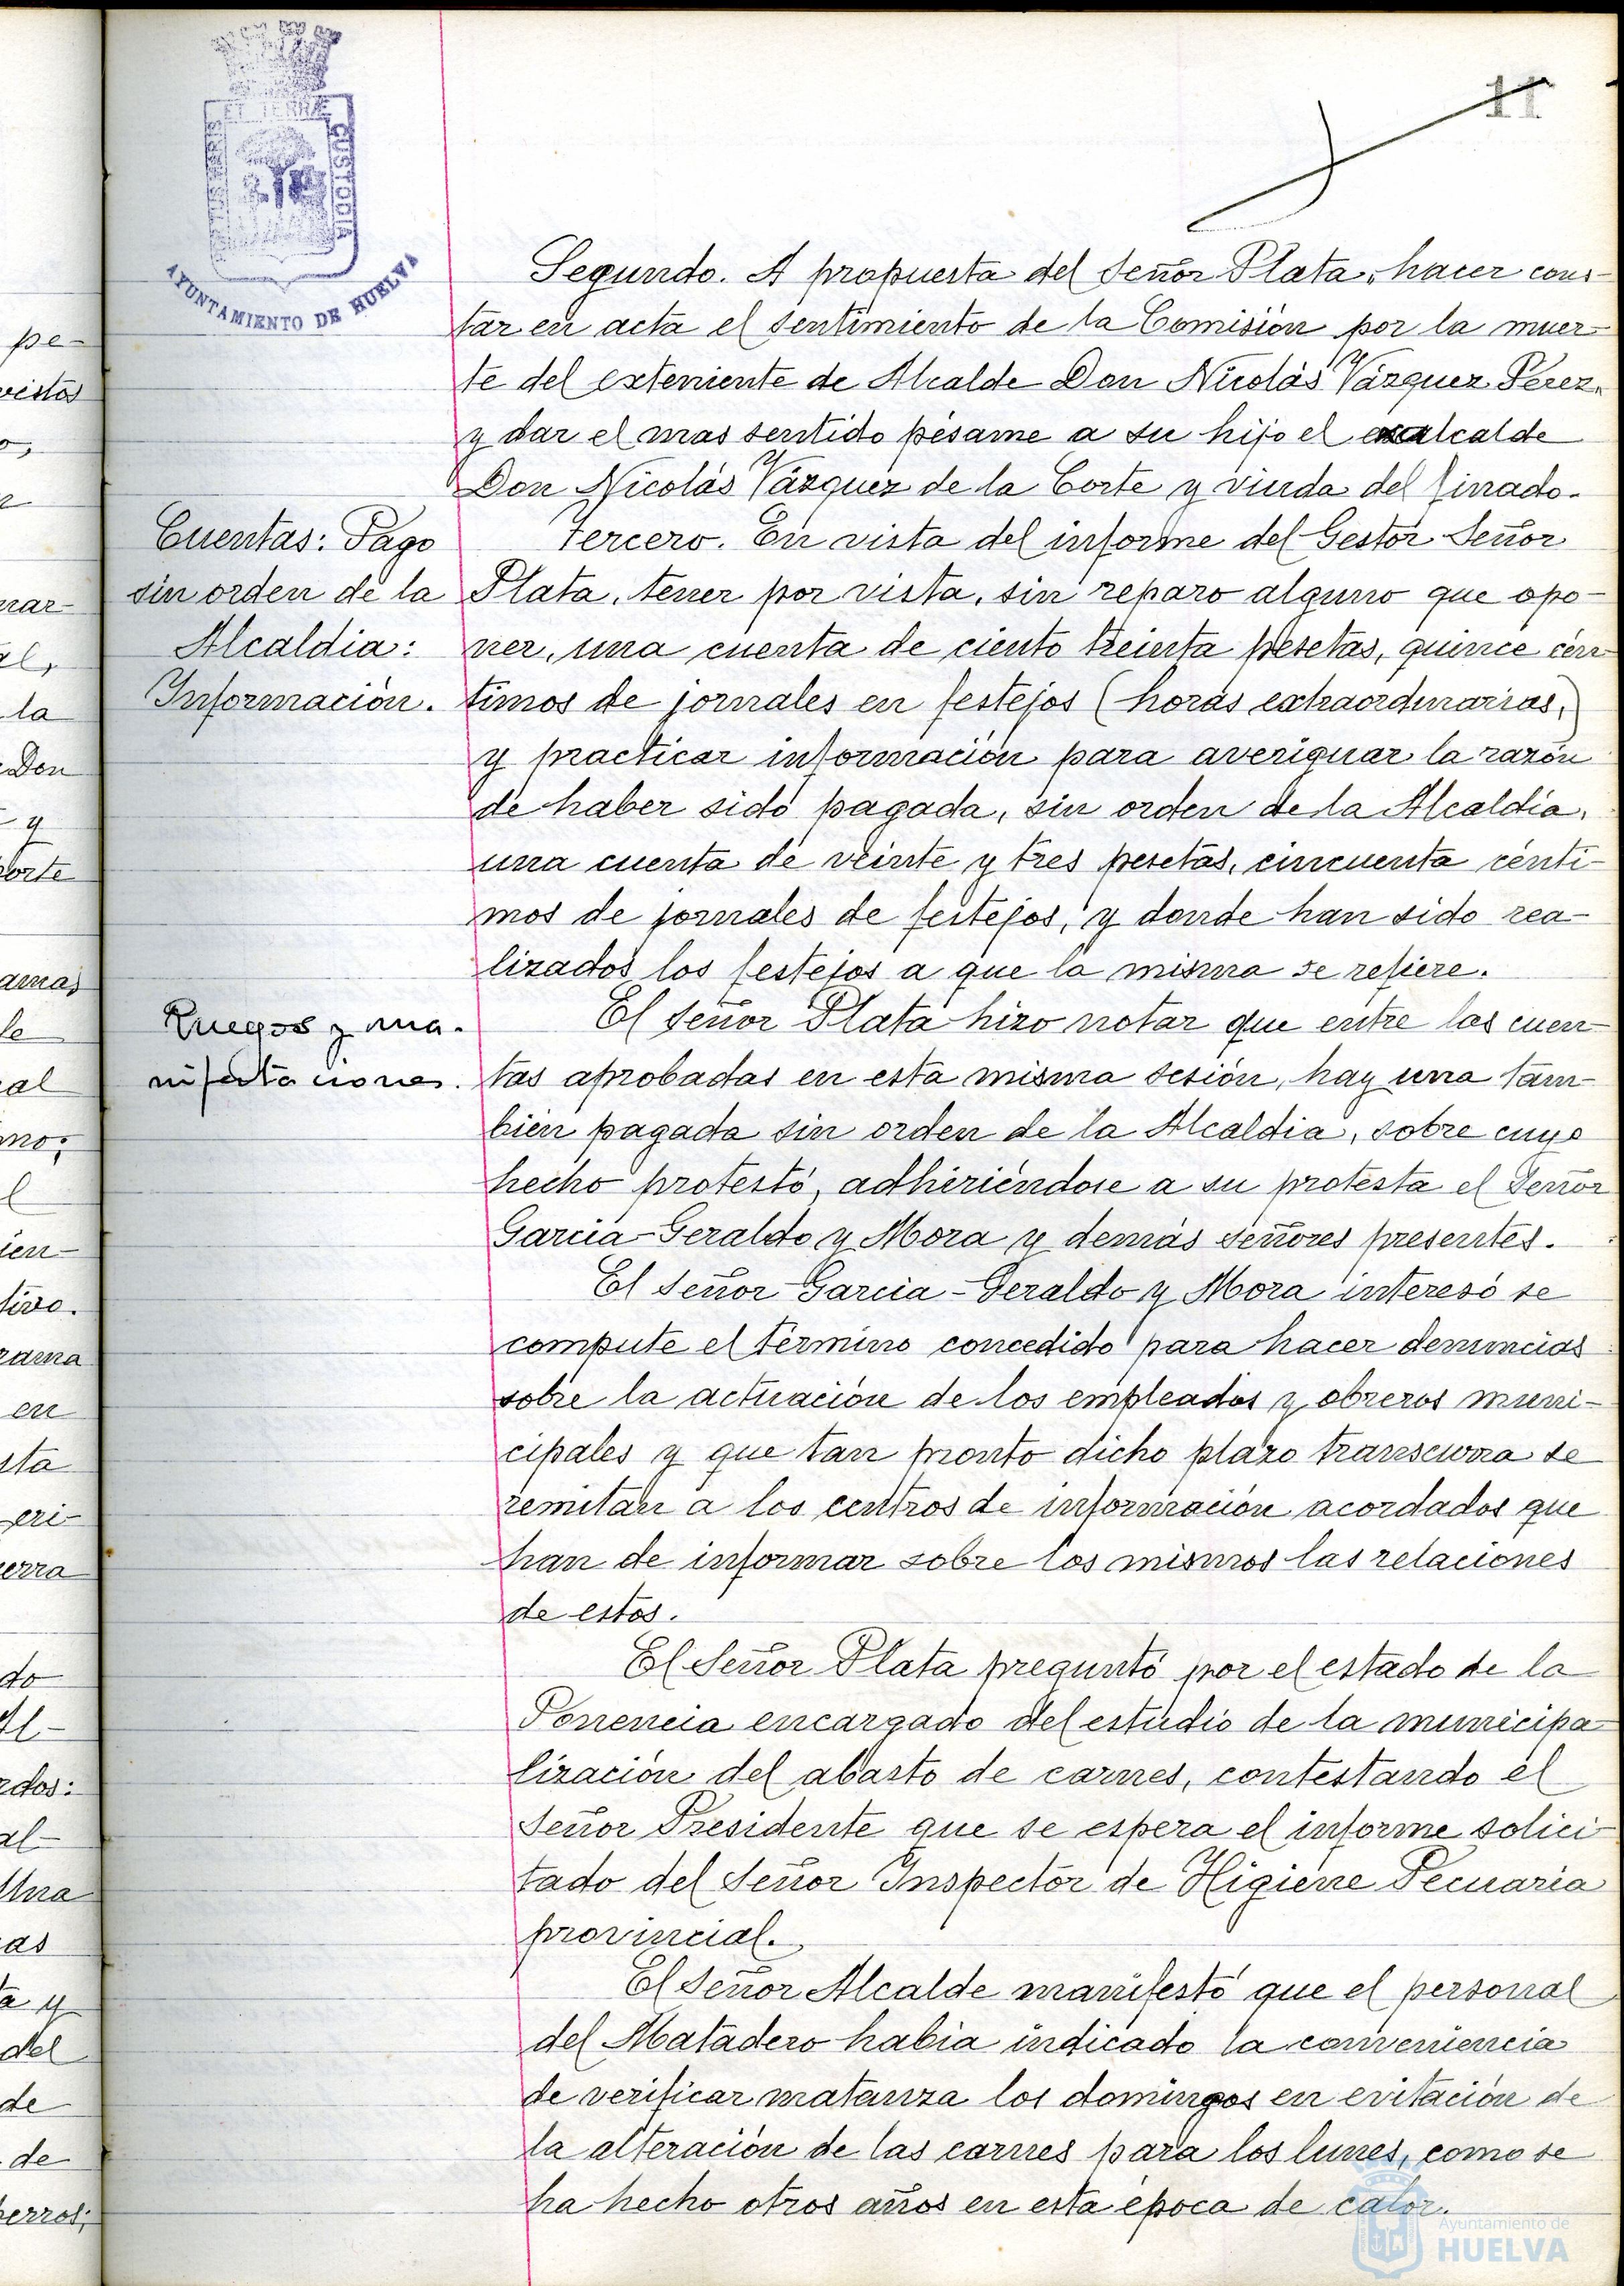 11
ET TERRÆ
CUSTODIA
AYUNTAMIENTO DE HUELVA
Segundo. A propuesta del Señor Plata, hacer cons-
tar en acta el sentimiento de la Comisión por la muer-
te del exteniente de Alcalde Don Nicolás Vázquez Pérez,
y dar el mas sentido pésame a su hijo el exalcalde
Don Nicolás Vázquez de la Corte y viuda del finado.
Cuentas: Pago
sin orden de la
Alcaldia:
Información.
Tercero. En vista del informe del Gestor Señor
Plata, tener por vista, sin reparo alguno que opo-
ner, una cuenta de ciento treinta pesetas, quince cén-
timos de jornales en festejos (horas extraordinarias,)
y practicar información para averiguar la razón
de haber sido pagada, sin orden de la Alcaldía,
una cuenta de veinte y tres pesetas, cincuenta cénti-
mos de jornales de festejos, y donde han sido rea-
lizados los festejos a que la misma se refiere.
Ruegos y ma-
nifestaciones.
El Señor Plata hizo notar que entre las cuen-
tas aprobadas en esta misma sesión, hay una tam-
bién pagada sin orden de la Alcaldia, sobre cuyo
hecho protestó, adhiriéndose a su protesta el Señor
Garcia-Geraldo y Mora y demás señores presentes.
El Señor Garcia-Geraldo y Mora interesó se
compute el término concedido para hacer denuncias
sobre la actuación de los empleados y obreros muni-
cipales y que tan pronto dicho plazo transcurra se
remitan a los centros de información acordados que
han de informar sobre los mismos las relaciones
de estos.
El Señor Plata preguntó por el estado de la
Ponencia encargado del estudio de la municipa-
lización del abasto de carnes, contestando el
Señor Presidente que se espera el informe solici-
tado del Señor Inspector de Higiene Pecuaria
provincial.
El Señor Alcalde manifestó que el personal
del Matadero habia indicado la conveniencia
de verificar matanza los domingos en evitación de
la alteración de las carnes para los lunes, como se
ha hecho otros años en esta época de calor.
Ayuntamiento de
HUELVA